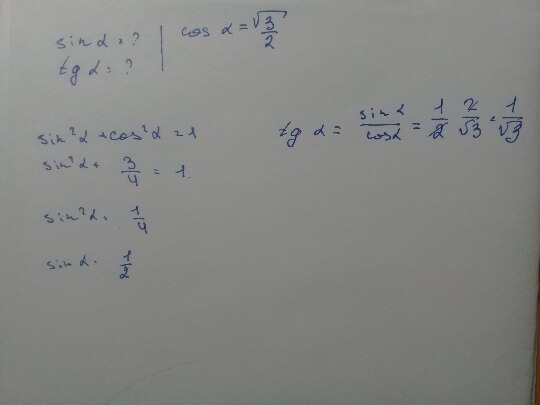 sin α = ?
tg α = ?
cos α = √3/2
sin²α + cos²α = 1
sin²α + 3/4 = 1.
sin²α = 1/4
sin α = 1/2
tg α = sin α/cos α = 1/2 · 2/√3 = 1/√3